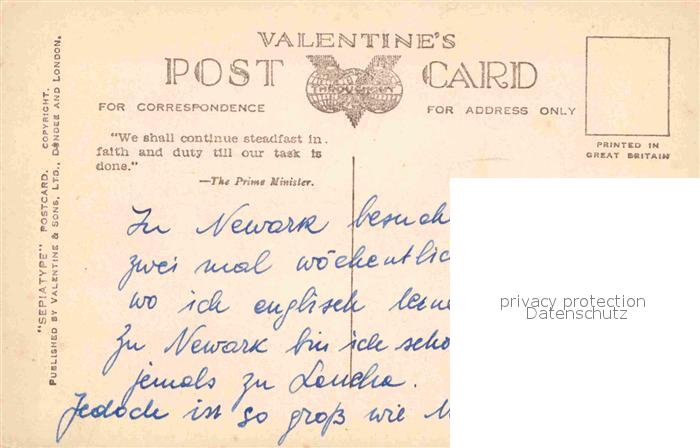 VALENTINE'S
POST CARD
THROUGHOUT
FOR CORRESPONDENCE
FOR ADDRESS ONLY
PRINTED IN
GREAT BRITAIN
"We shall continue steadfast in
faith and duty till our task is
done."
—The Prime Minister.
"SEPIATYPE" POSTCARD. COPYRIGHT.
PUBLISHED BY VALENTINE & SONS, LTD., DUNDEE AND LONDON.
In Newark besuch
zwei mal wöchentlic
wo ich englisch lerne
Zu Newark bin ich scho
jemals zu
Jedoch ist so groß wie M
privacy protection
Datenschutz